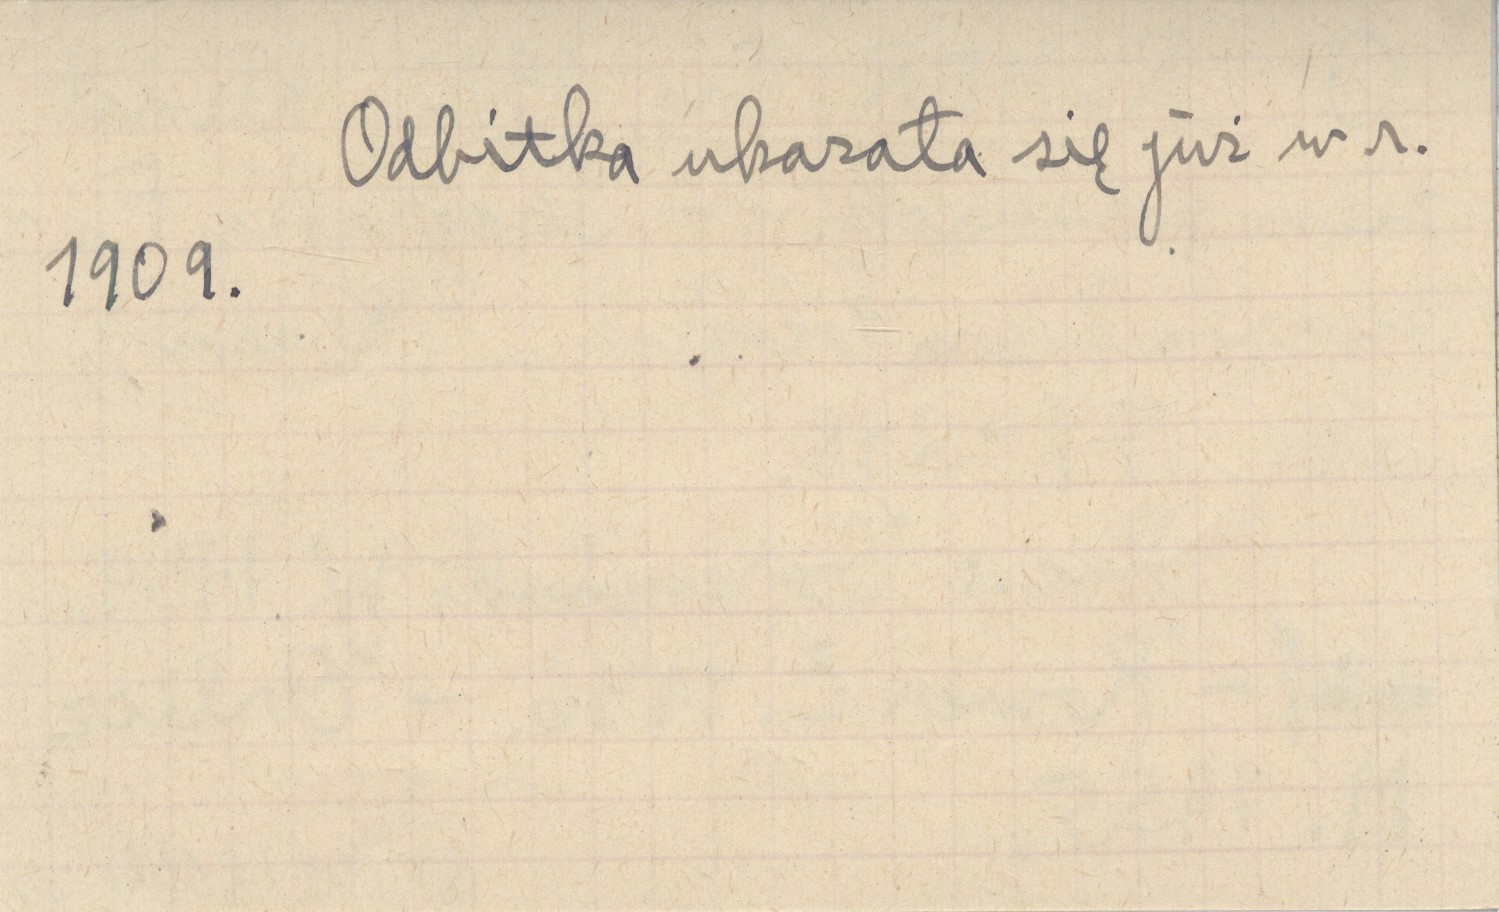 Odbitka ukazała się już w r.
1909.